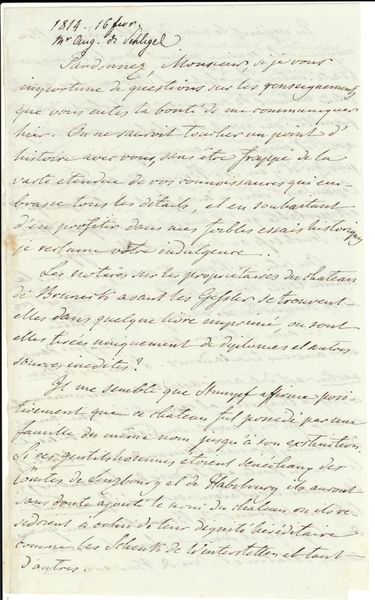 1814. 16 fevr.
Mr Aug. de Schlegel.
Pardonnez, Monsieur, si je vous
importune de questions sur les renseignements
que vous eutes la bonté de me communiquer
hier. On ne sauroit toucher un point d'
histoire avec vous, sans être frappé de la
vaste etendue de vos connoissances qui em-
brasse tous les détails, et en souhaitant
d'en profiter dans mes foibles essais historiques
je reclame votre indulgence.
Les notices sur les propriétaires du chateau
de Bruneck avant les Gessler se trouvent-
elles dans quelque livre imprimé, ou sont
elles tirées uniquement de diplomes et autres
sources inedites?
Il me semble que Stumpf affirme posi-
tivement que ce chateau fut possedé par une
famille du même nom jusqu'à son extinction.
Si ces gentilshommes etoient senéchaux des
Comtes de Lenzbourg et de Habsbourg ils auront
sans doute ajouté le nom du chateau où ils re-
sidoient à celui de leur dignité héréditaire
comme les Schenk de Winterstetten et tant
d'autres.